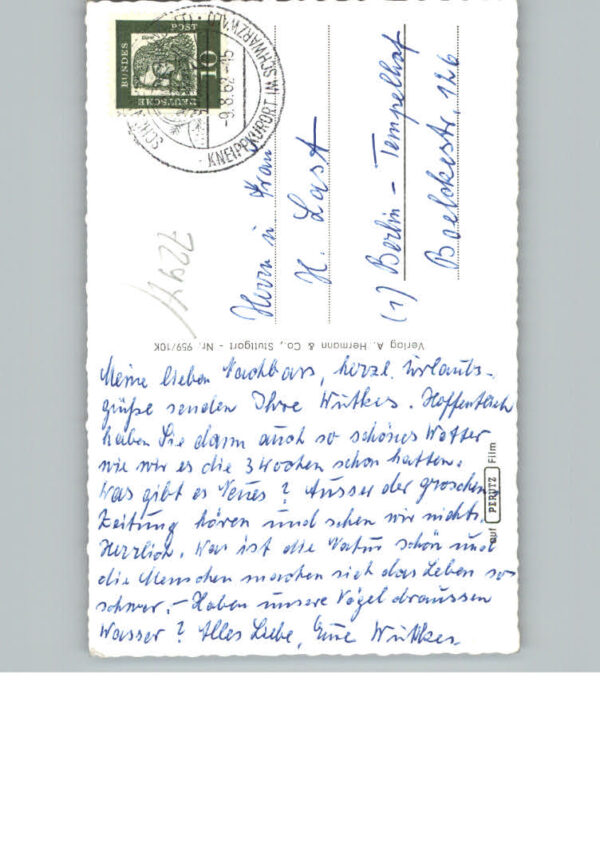 DEUTSCHE
BUNDES
POST
10
-9.8.62-15
KNEIPPKURORT IM SCHWARZWALD
Herrn u Frau
H. Last
(1) Berlin - Tempelhof
Boelckestr. 126
Verlag A. Hermann & Co., Stuttgart - Nr. 959/10K
auf PERUTZ Film
Meine lieben Nachbars, herzl. Urlaubs-
grüße senden Ihre Wutkes. Hoffentlich
haben Sie dann auch so schönes Wetter
wie wir es die 3 Wochen schon hatten.
Was gibt es Neues? Ausser der groschen
Zeitung hören und sehen wir nichts.
Herrlich. Was ist die Natur schön und
die Menschen machen sich das Leben so
schwer. – Haben unsere Vögel draussen
Wasser? Alles Liebe, Eure Wuttkes.